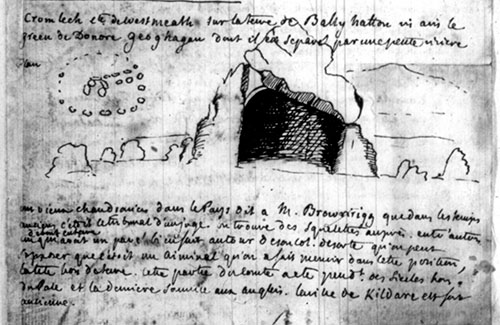 Cromlech Cté de Westmeath sur la terre de Bally hatton vis avis le
green de Donore Geoghagan dont il est separé par une petite riviere
plan
un vieux chansonier dans le Pays dit a M. Brownrigg que dans les temps
anciens c'etoit le tribunal d'un juge. se trouve des squelettes aupres. entr'autres
debout enterré
un qui avoit un pavé bien fait autour de son col. de sorte qu'on peut
supposer que c'etoit un criminel qu'on a fait mourir dans cette position,
la tete hors de terre. cette partie du comté a eté pendt. des siecles hors
du Pale et la derniere soumise aux anglois. la ville de Kildare est fort
ancienne.